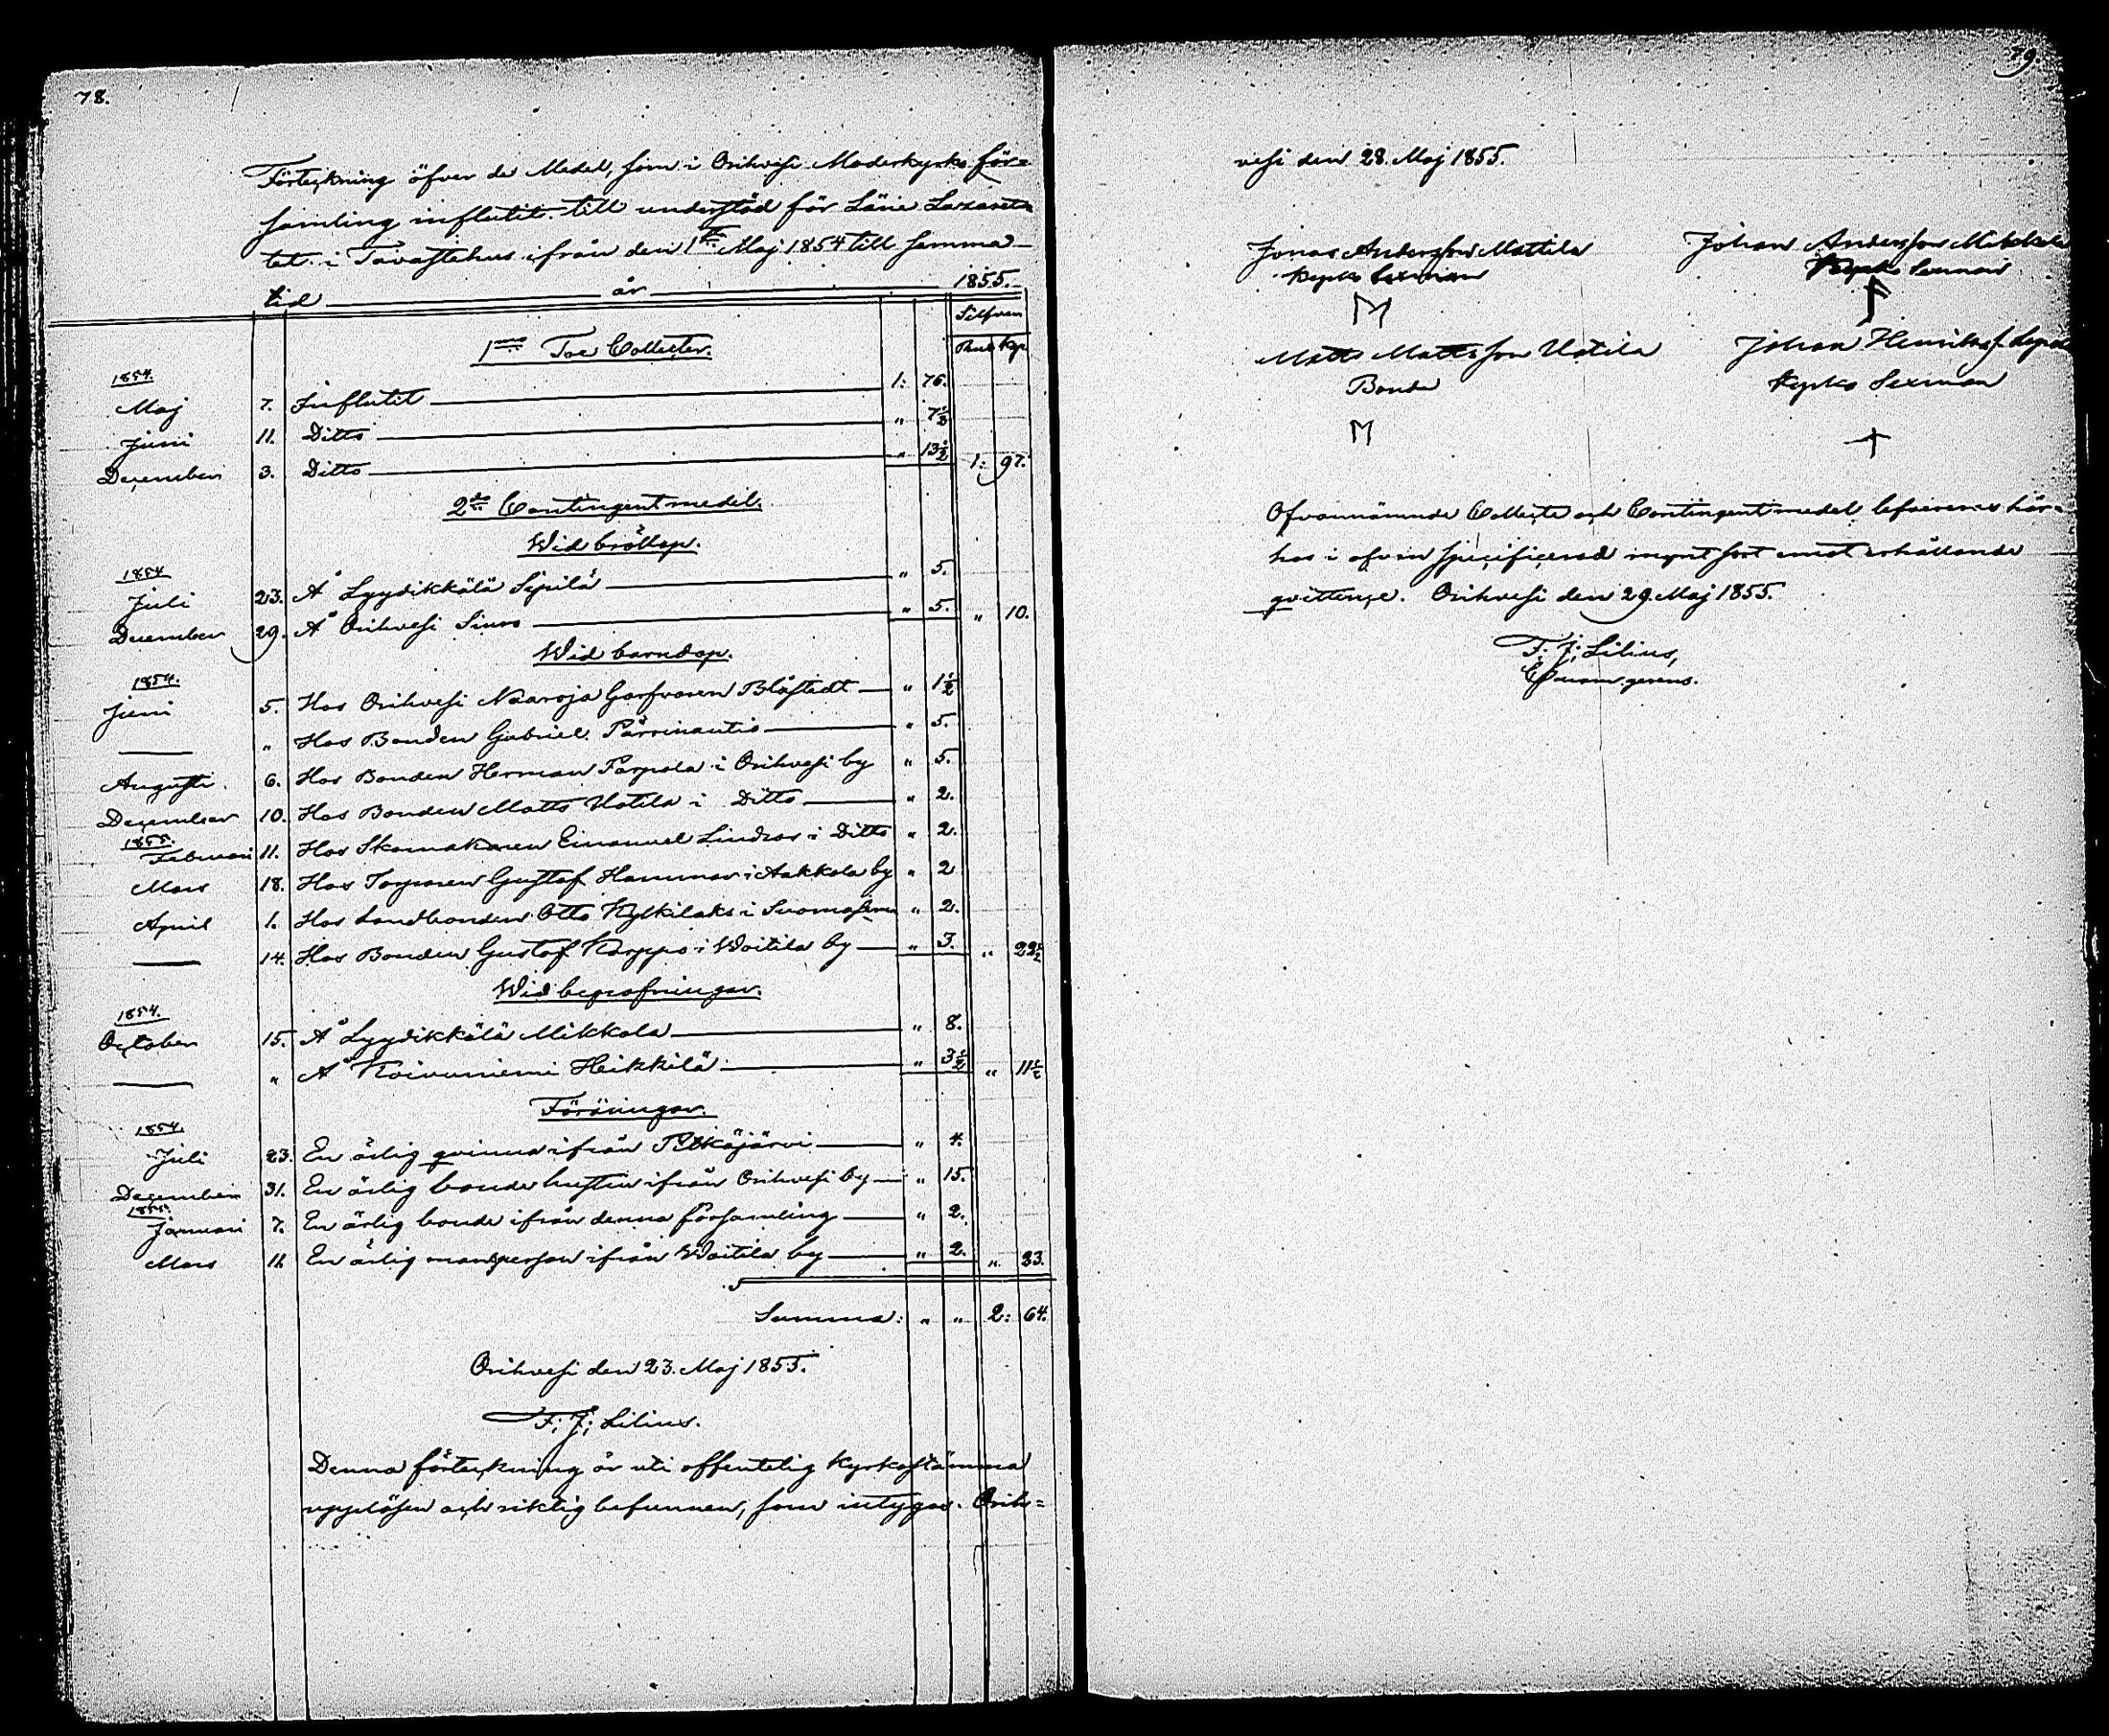 78.
Förteckning öfver de Medel, som i Orihvesi Moderkyrko för=
samling influtit till understöd för Läne Lazaret=
tet i Tavastehus ifrån den 1ste Maj 1854 till samma
tid år 1855.
Silfver
Rub. Kop.
1mo Toe Collecter.
1854.
Maj 7. Influtit 1: 76.
Juni 11. Ditto " 7½
December 3. Ditto " 13½ 1: 97.
2do Contingentmedel.
Wid bröllop.
1854
Juli 23. Å Lyydikkälä Sipilä " 5.
December 29. Å Orihvesi Siuro " 5. " 10.
Wid barndop.
1854.
Juni 5. Hos Orihvesi Naaroja Garfvaren Blåstedt " 1½
" Hos Bonden Gabriel Pärrinautio " 5.
Augusti 6. Hos Bonden Herman Parpola i Orihvesi by " 5.
December 10. Hos Bonden Matts Uotila i Ditto " 2.
1855.
Februari 11. Hos Skomakaren Emanuel Lindros i Ditto " 2.
Mars 18. Hos Torparen Gustaf Hammar i Aakkola by " 2
April 1. Hos Landbonden Otto Kylkilaks i " 2.
14. Hos Bonden Gustaf Karppo i Woitila by " 3. " 22½
Wid begrafningar.
1854.
October 15. Å Lyydikkälä Mikkola " 8.
" Å Koivuniemi Heikkilä " 3½ " 11½
Föräringar.
1854.
Juli 23. En ärlig qvinna ifrån Pitkäjärvi " 4.
December 31. En ärlig bonde hustru ifrån Orihvesi by " 15.
1855.
Januari 7. En ärlig bonde ifrån denna församling " 2.
Mars 11. En ärlig mansperson ifrån Woitila by " 2. " 23.
Summa: " " 2: 64.
Orihvesi den 23. Maj 1855.
F: J: Lilius.
Denna förteckning är uti offentelig Kyrkostämma
uppläsen och riktig befunnen, som intygas. Orih=
79.
vesi den 28. Maj 1855.
Jonas Andersson Mattila Johan Andersson Mikkola
Kyrko Sexman Kyrko Sexman
M
Matts Mattsson Uotila Johan Henrikss.
Bonde Kyrko Sexman
M
Ofvannämnde Collecte och Contingent medel lefvereras här=
hos i ofvan specificerad mynt sort emot erhållande
qvittence. Orihvesi den 29. Maj 1855.
F: J: Lilius,